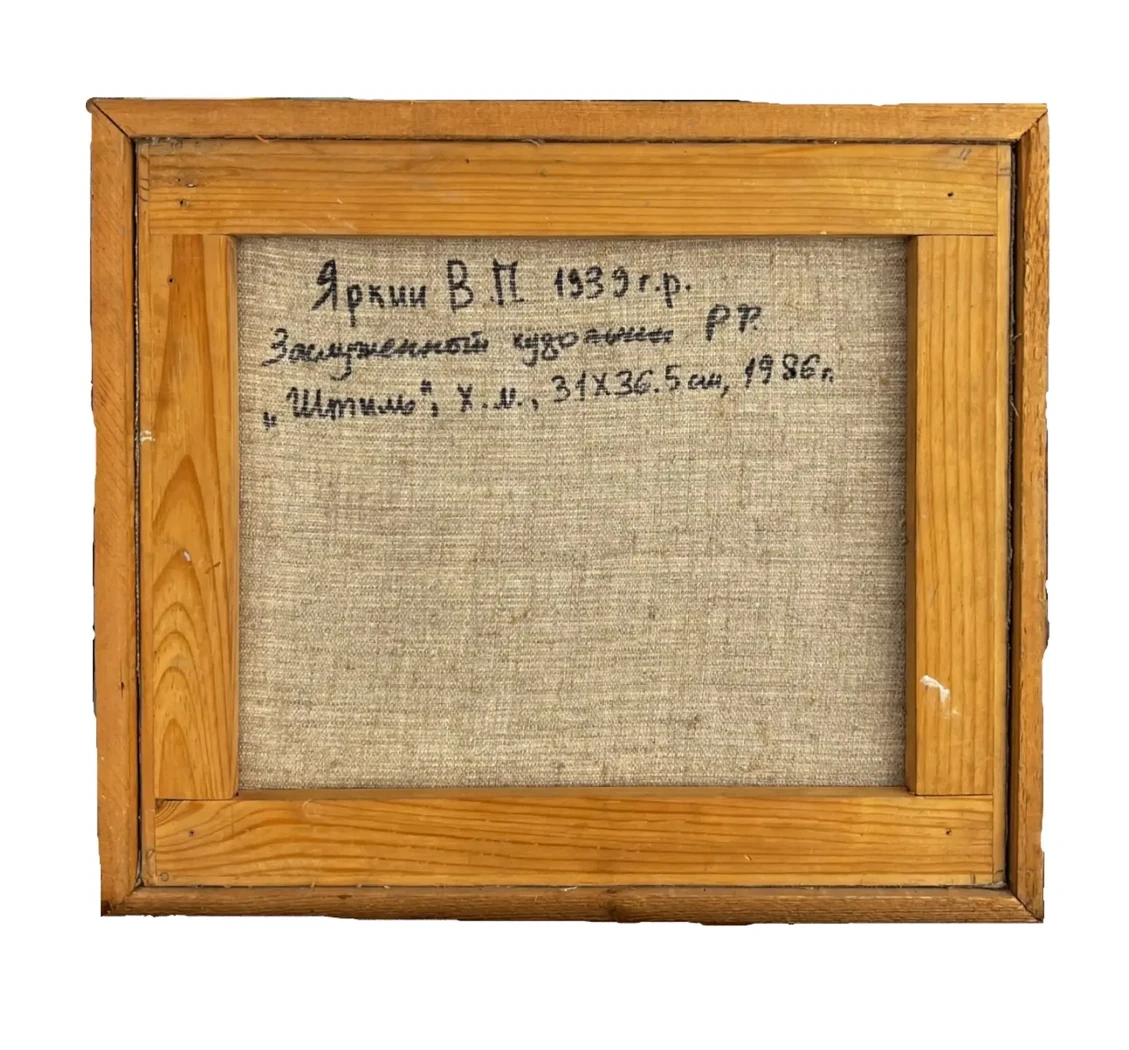 Яркий В.П. 1939 г.р.
Заслуженный художник РФ.
„Штиль", х.м., 31Х36.5 см, 1986 г.